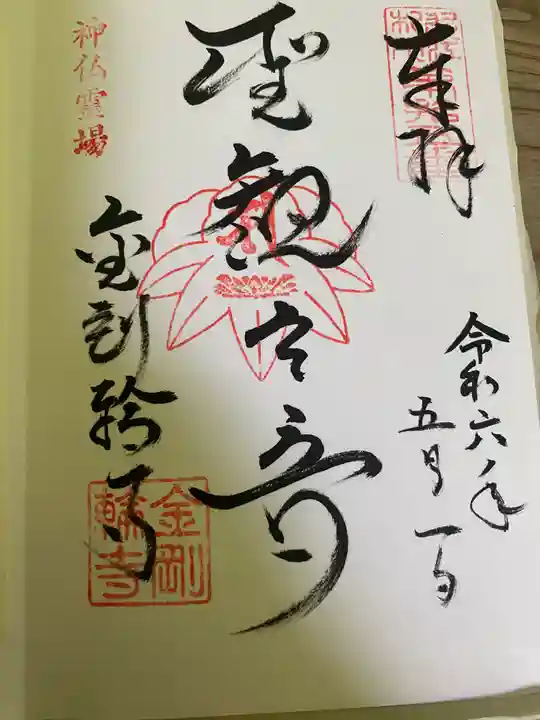 奉拝
令和六年
五月一日
聖観世音
神仏霊場
金剛輪寺
金剛輪寺